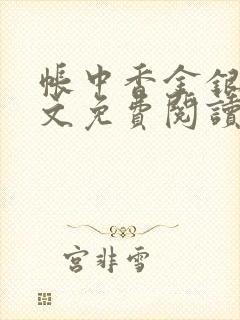 帳中香金銀
文免費閱讀
宮非雪